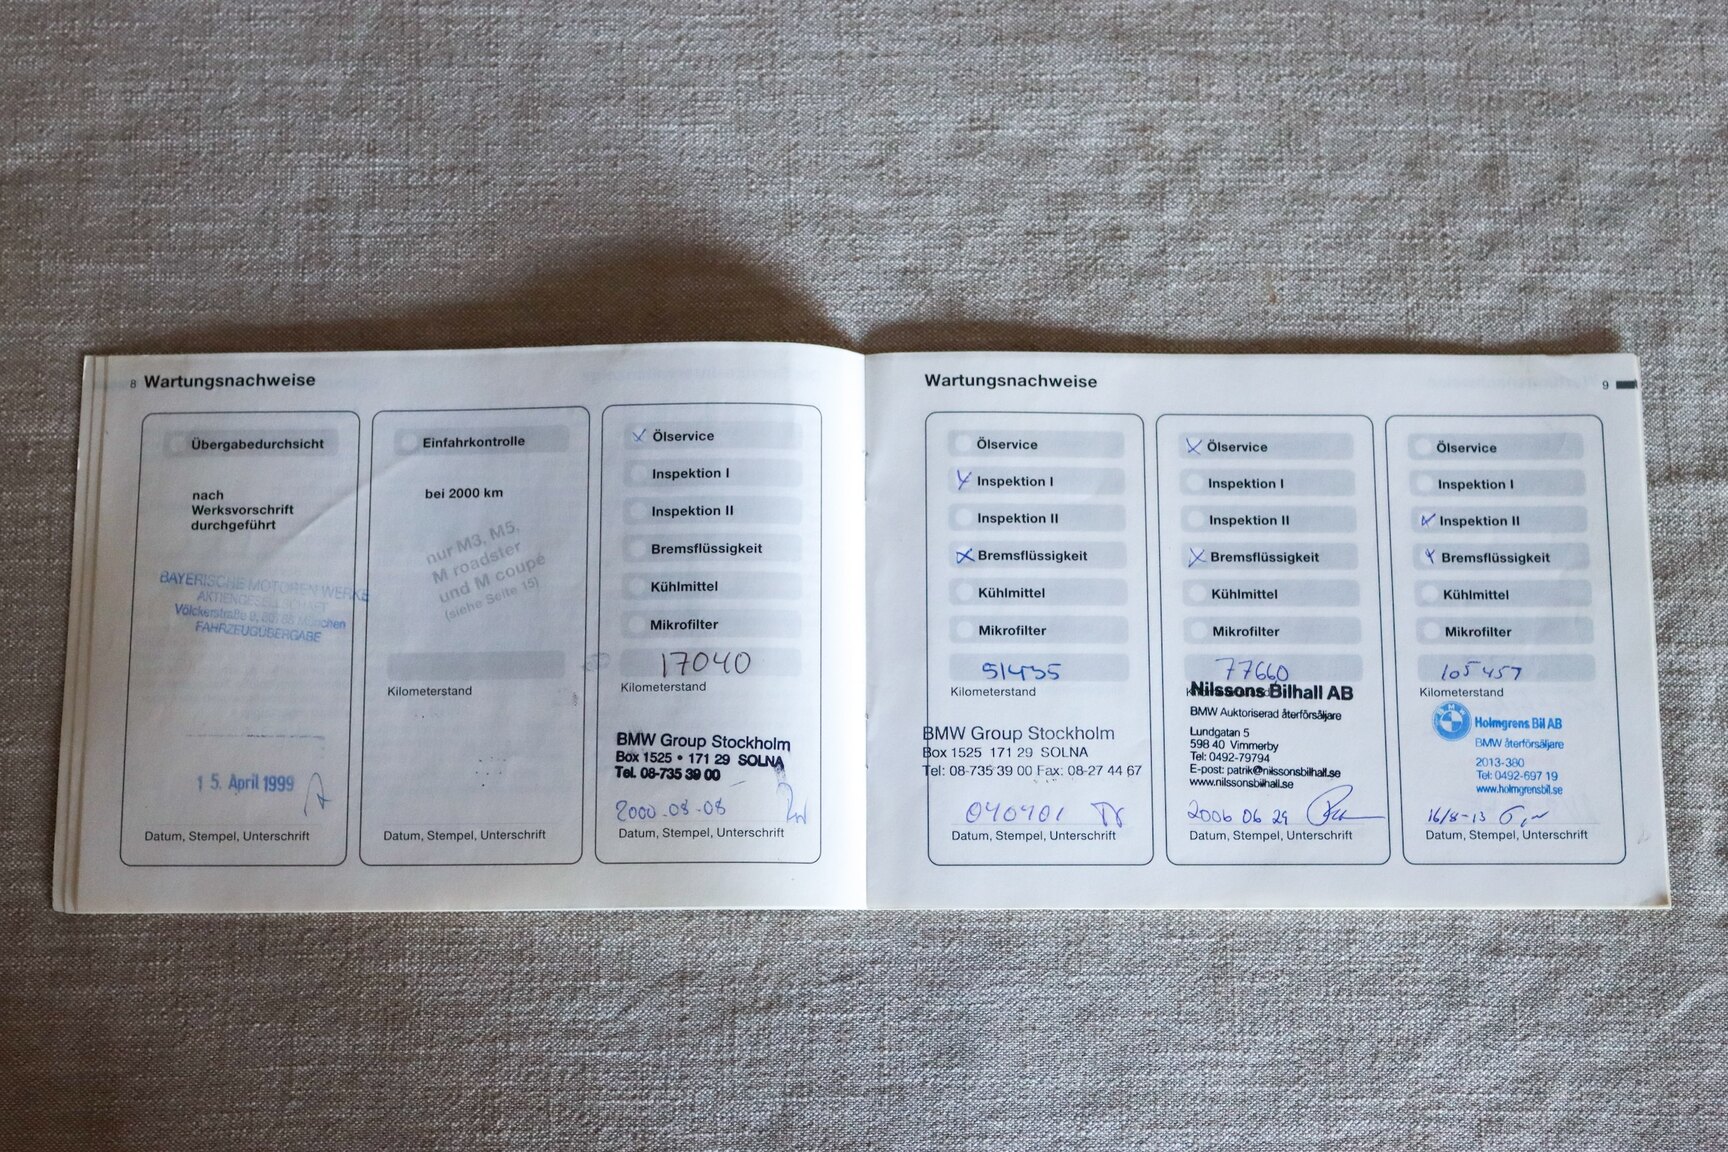 8 Wartungsnachweise
Übergabedurchsicht
nach
Werksvorschrift
durchgeführt
BAYERISCHE MOTOREN WERKE
AKTIENGESELLSCHAFT
Völckerstraße 9, München
FAHRZEUGÜBERGABE
15. April 1999
Datum, Stempel, Unterschrift
Einfahrkontrolle
bei 2000 km
nur M3, M5,
M roadster
und M coupé
(siehe Seite 15)
Kilometerstand
Datum, Stempel, Unterschrift
Ölservice
Inspektion I
Inspektion II
Bremsflüssigkeit
Kühlmittel
Mikrofilter
17040
Kilometerstand
BMW Group Stockholm
Box 1525 • 171 29 SOLNA
Tel. 08-735 39 00
2000-08-08
Datum, Stempel, Unterschrift
Wartungsnachweise 9
Ölservice
Inspektion I
Inspektion II
Bremsflüssigkeit
Kühlmittel
Mikrofilter
Kilometerstand
BMW Group Stockholm
Box 1525 171 29 SOLNA
Tel: 08-735 39 00 Fax: 08-27 44 67
040401
Datum, Stempel, Unterschrift
Ölservice
Inspektion I
Inspektion II
Bremsflüssigkeit
Kühlmittel
Mikrofilter
77660
Nilssons Bilhall AB
BMW Auktoriserad återförsäljare
Lundgatan 5
598 40 Vimmerby
Tel: 0492-79794
E-post: patrik@nilssonsbilhall.se
www.nilssonsbilhall.se
2006 06 29
Datum, Stempel, Unterschrift
Ölservice
Inspektion I
Inspektion II
Bremsflüssigkeit
Kühlmittel
Mikrofilter
105457
Kilometerstand
BMW
Holmgrens Bil AB
BMW återförsäljare
2013-380
Tel: 0492-697 19
www.holmgrensbil.se
16/8-13
Datum, Stempel, Unterschrift